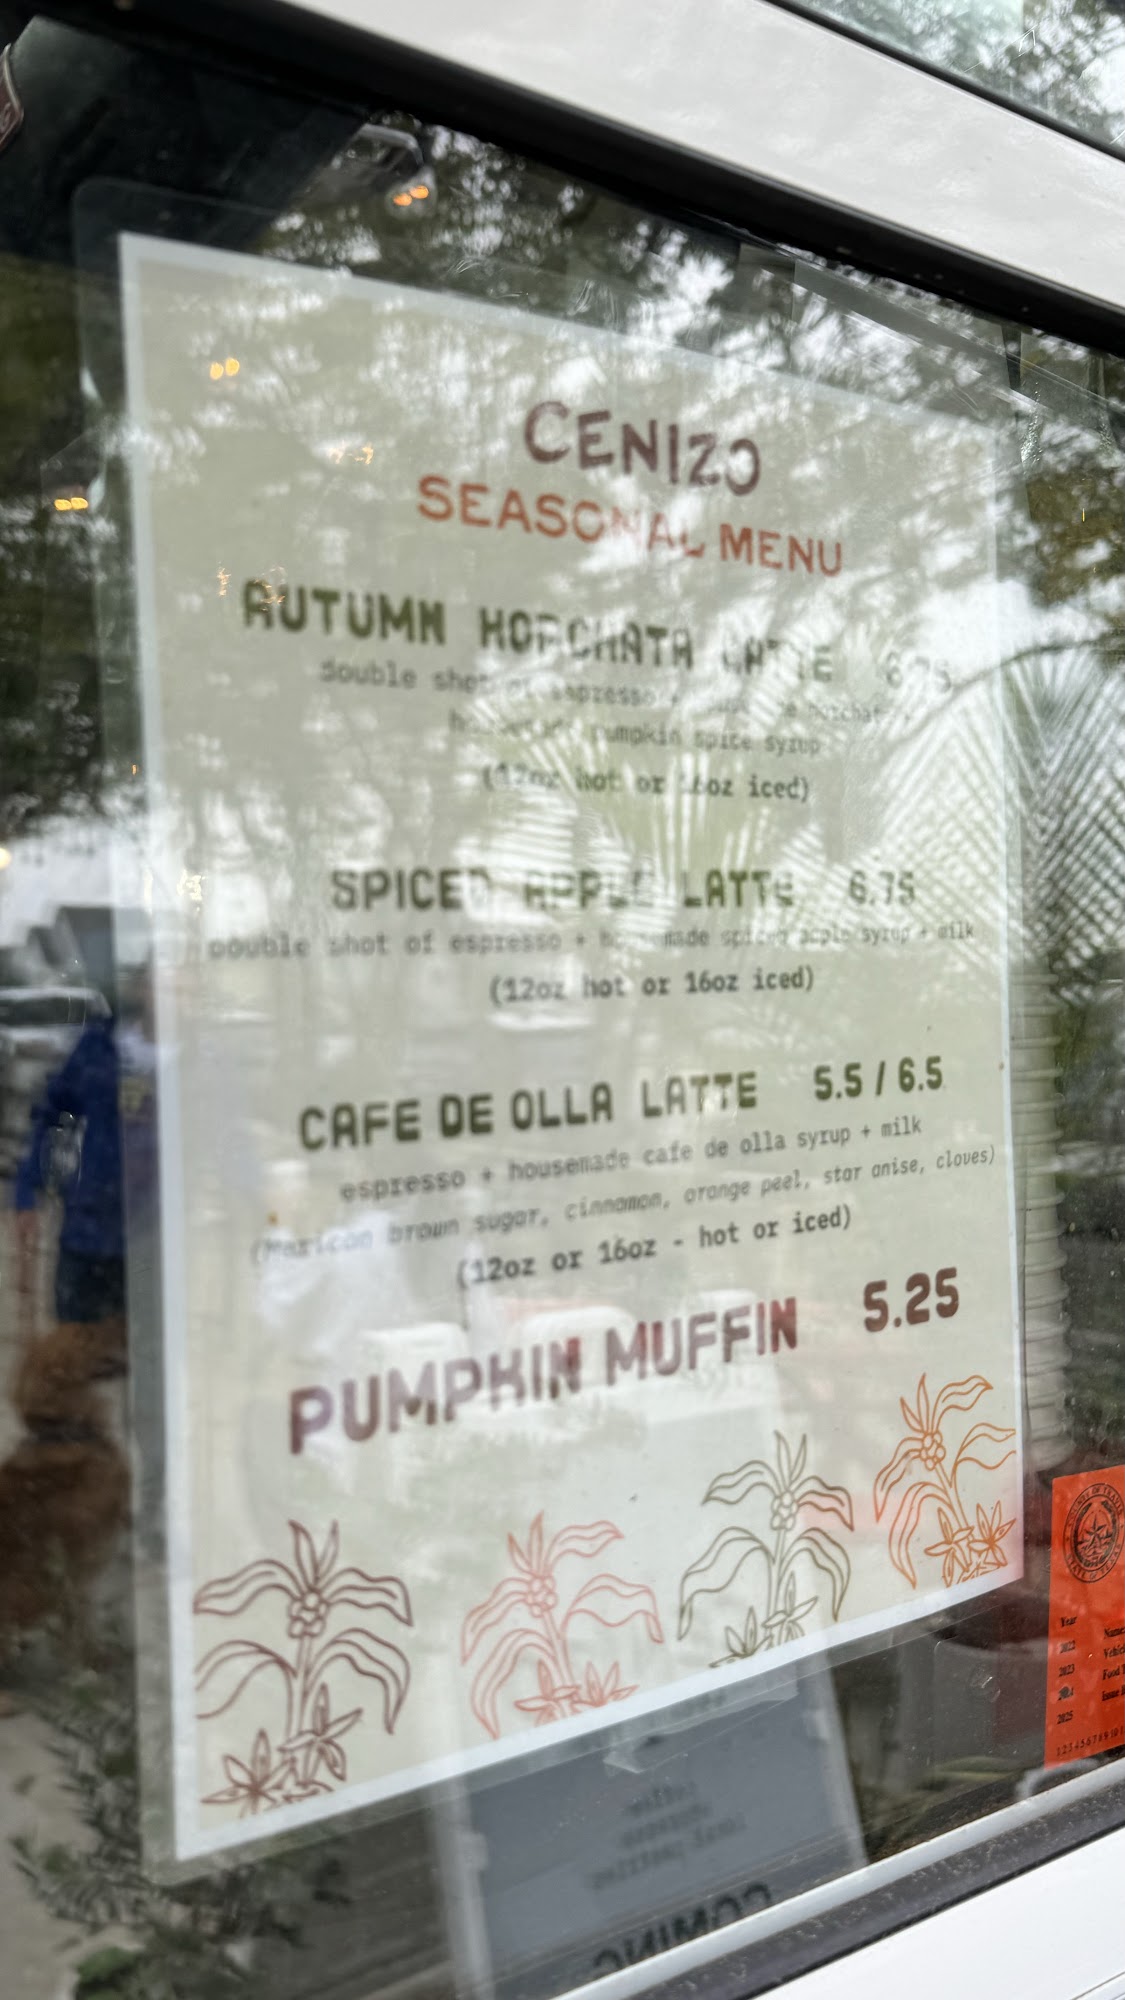 CENIZO
SEASONAL MENU
AUTUMN HORCHATA LATTE 6.75
double shot of espresso + horchata +
housemade pumpkin spice syrup
(12oz hot or 16oz iced)
SPICED APPLE LATTE 6.75
double shot of espresso + housemade spiced apple syrup + milk
(12oz hot or 16oz iced)
CAFE DE OLLA LATTE 5.5 / 6.5
espresso + housemade cafe de olla syrup + milk
(Mexican brown sugar, cinnamon, orange peel, star anise, cloves)
(12oz or 16oz - hot or iced)
PUMPKIN MUFFIN 5.25
Year
2022
2023
2024
2025
COMING